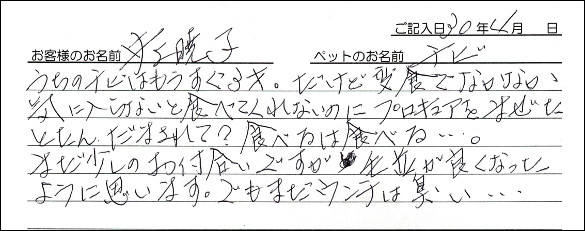 ご記入日30年4月 日
お客様のお名前 丘暁子 ペットのお名前 チビ
うちのチビはもうすぐ8才。だけど変食でなかなか
気に入らないと食べてくれないのにプロキュアをまぜた
とたん だまされて?食べるは食べる…。
まだ少しのお付合いですが 毛並が良くなった
ように思います。でもまだウンチは臭い…